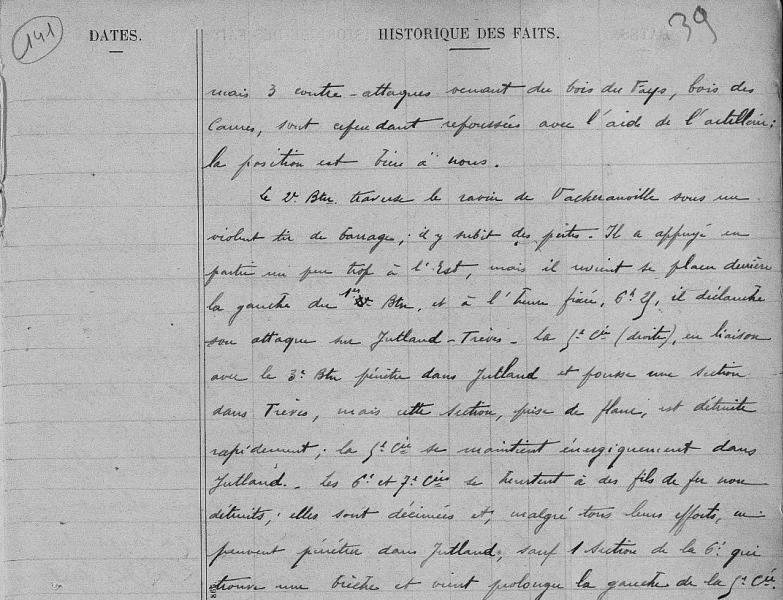 141
DATES.
HISTORIQUE DES FAITS.
39
mais 3 contre-attaques venant du bois du Fays, bois des
Caures, sont cependant repoussées avec l'aide de l'artillerie;
la position est bien à nous.
Le 2e Btn. traverse le ravin de Vacherauville sous un
violent tir de barrage; il y subit des pertes. Il a appuyé en
partie un peu trop à l'Est, mais il revient se placer derrière
la gauche du 1er Btn, et à l'heure fixée, 6h 25, il déclanche
son attaque sur Jutland-Trèves. La 5e Cie (droite), en liaison
avec le 3e Btn pénètre dans Jutland et pousse une section
dans Trèves, mais cette section, prise de flanc, est détruite
rapidement; la 5e Cie se maintient énergiquement dans
Jutland. Les 6e et 7e Cies se heurtent à des fils de fer non
détruits; elles sont décimées et, malgré tous leurs efforts, ne
peuvent pénétrer dans Jutland, sauf 1 Section de la 6e qui
trouve une brèche et vient prolonger la gauche de la 5e Cie.